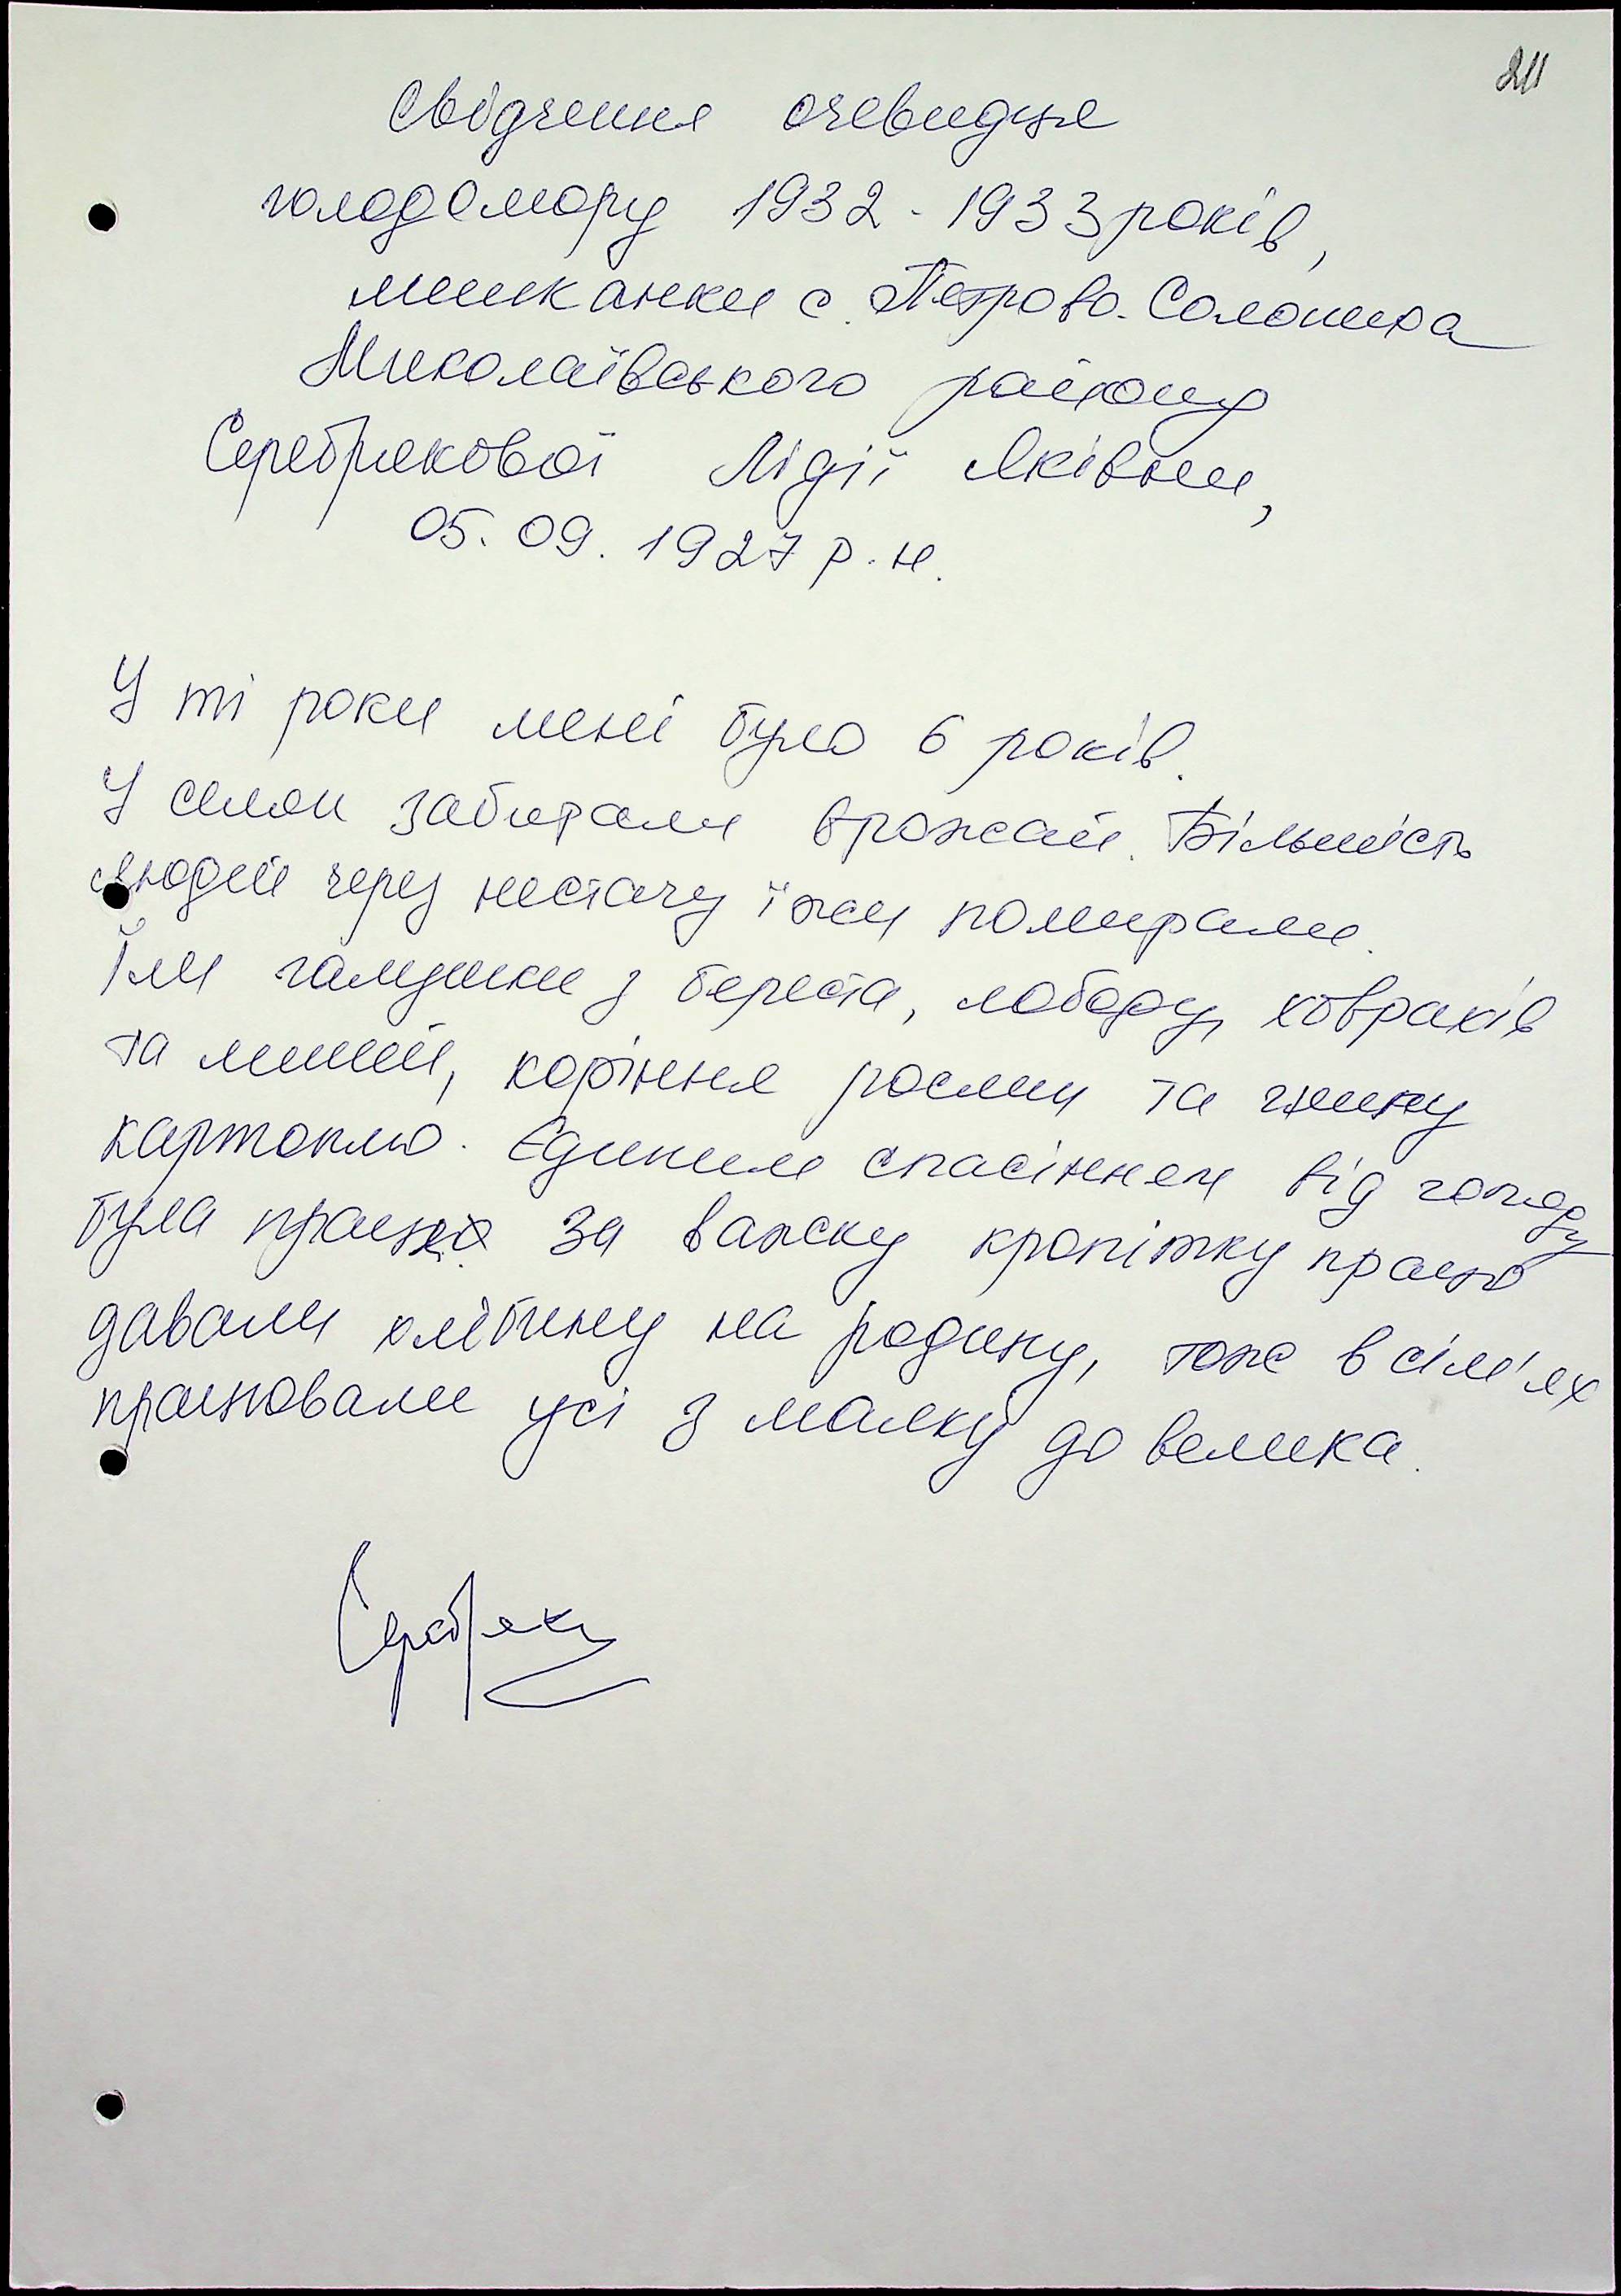 211
Свідчення очевидця
голодомору 1932-1933 років,
мешканки с. Петрово-Солониха
Миколаївського району
Серебрякової Лідії Яківни,
05.09.1927 р.н.
У ті роки мені було 6 років.
У селян забирали врожай. Більшість
людей через нестачу їжи помирали.
Їли галушки з береста, лободу, ховрахів
та мишей, коріння рослин та гнилу
картоплю. Єдиним спасінням від голоду
була праця. За важку кропітку працю
давали хлібину на родину, тож в сім'ях
працювали усі з малку до велика.
Серебряк